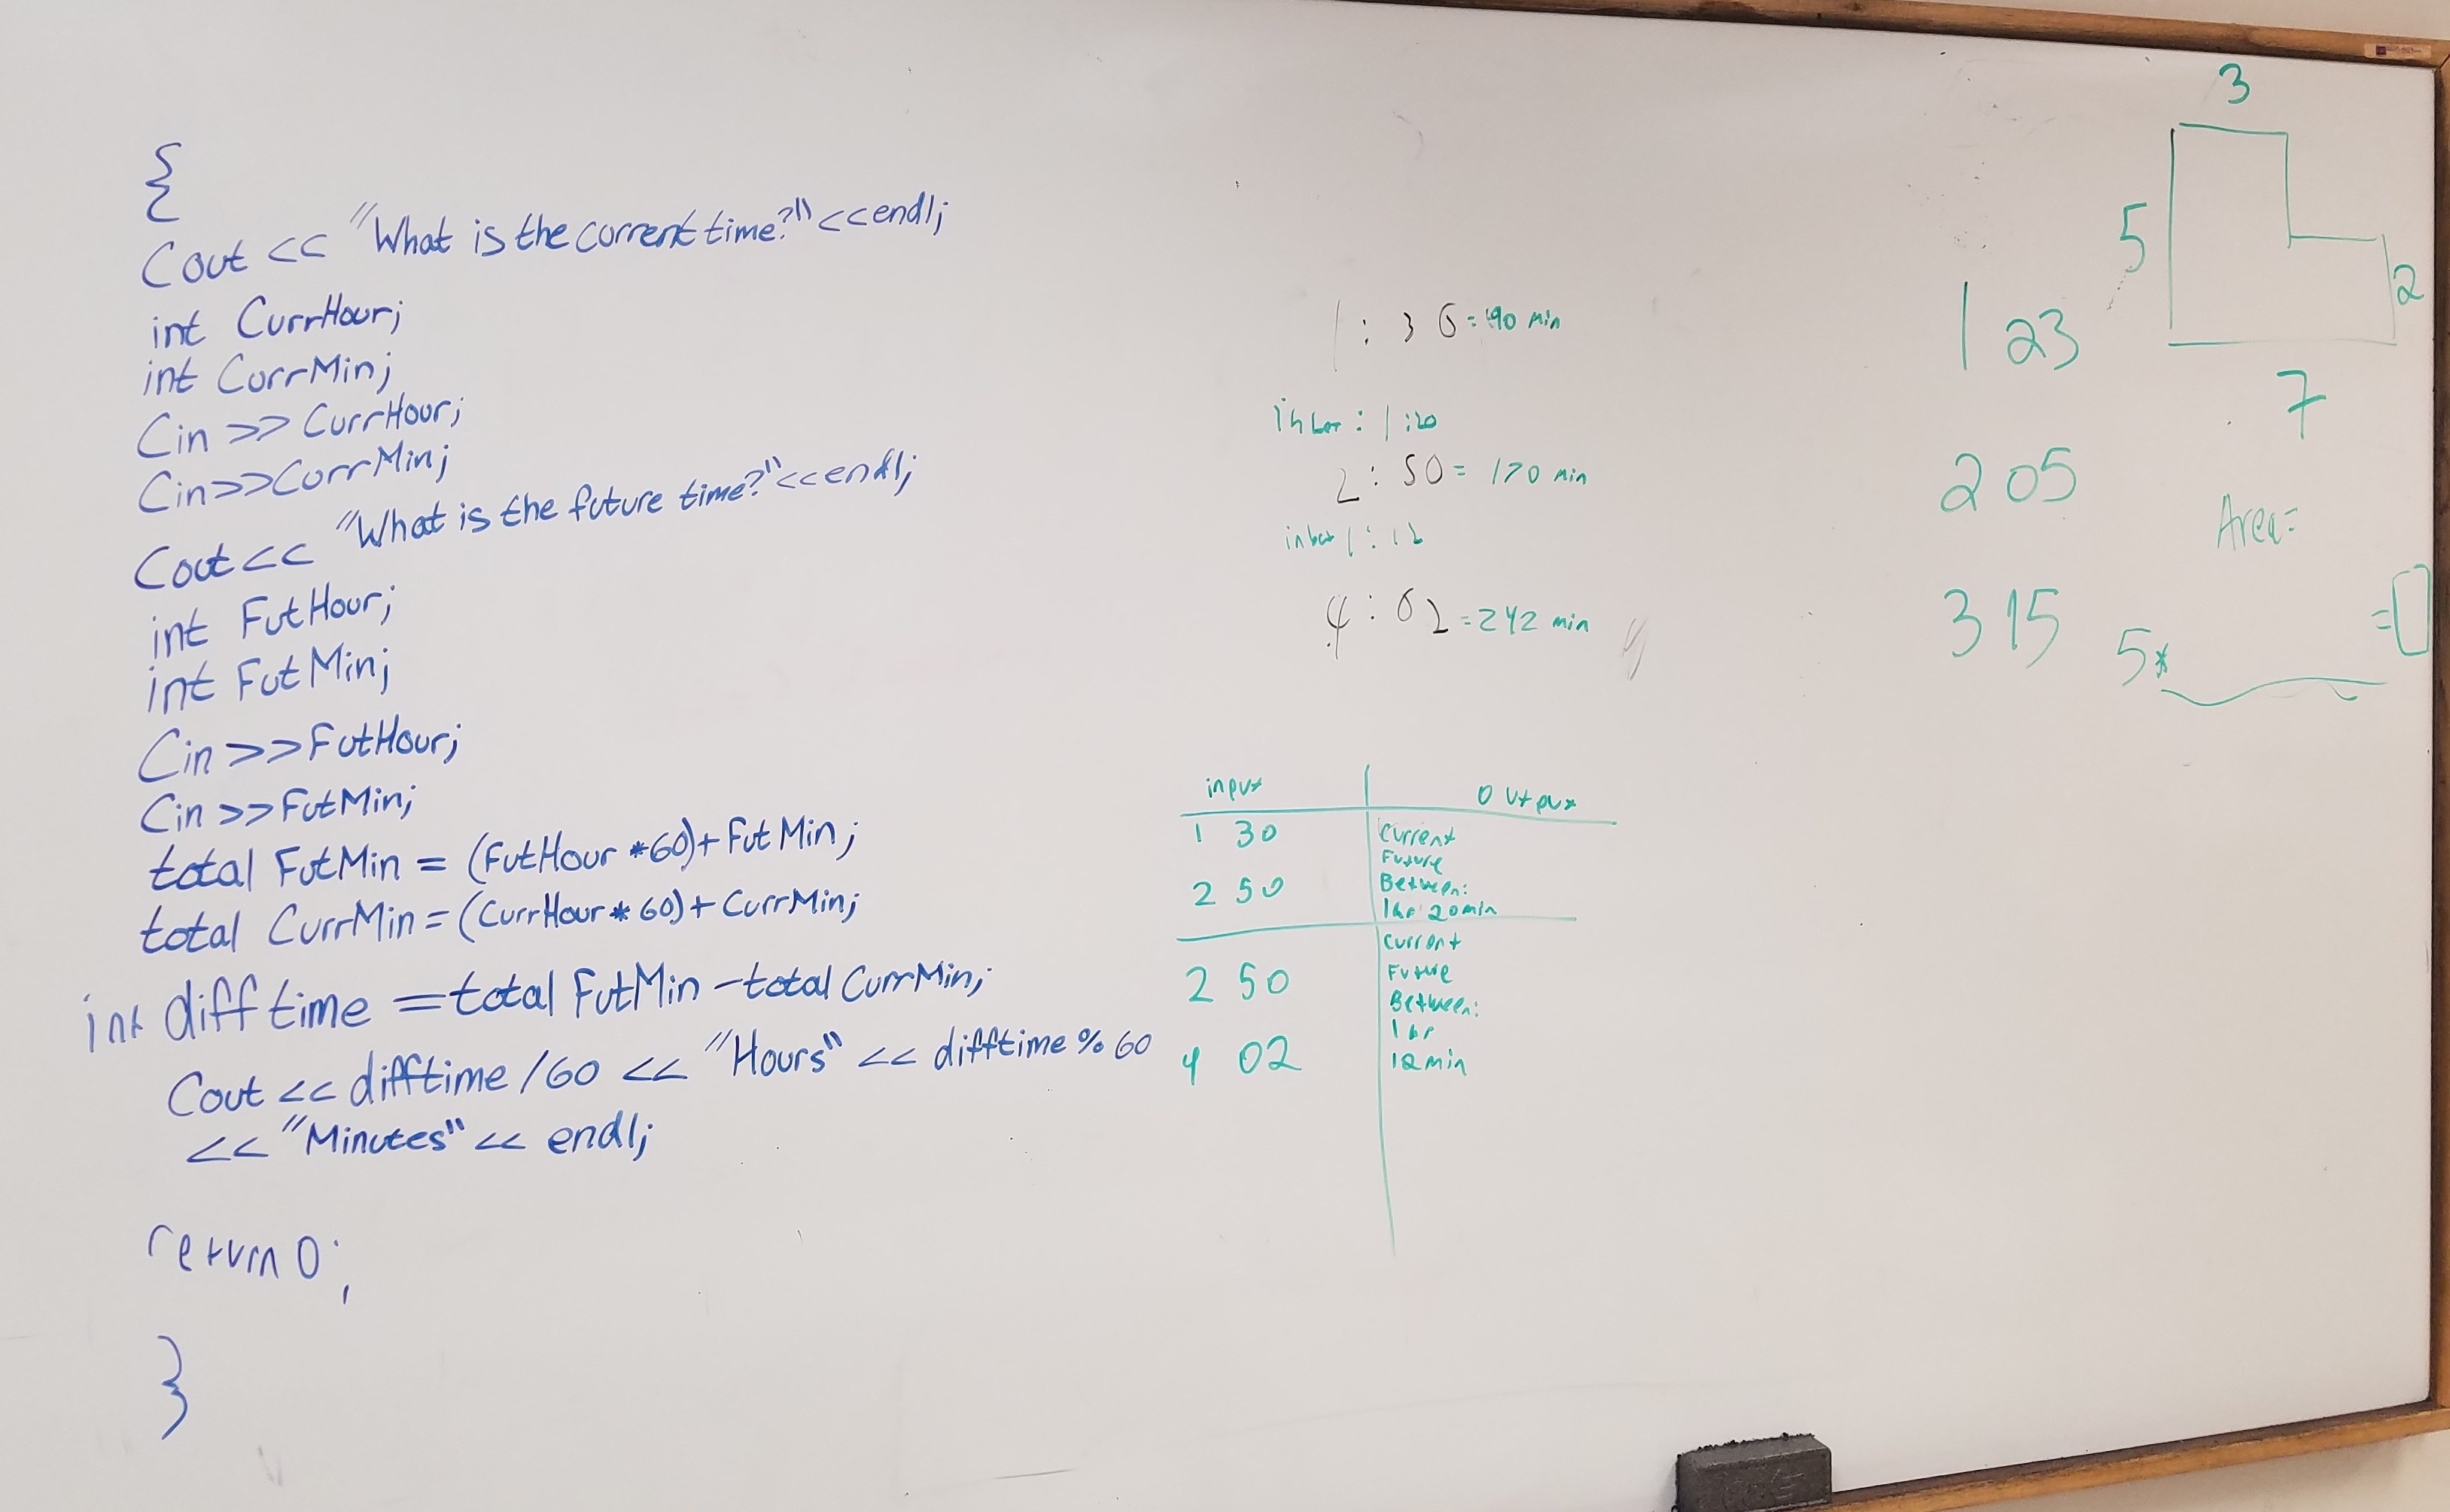 {
Cout << "What is the current time?" << endl;
int CurrHour;
int CurrMin;
Cin >> CurrHour;
Cin >> CurrMin;
Cout << "What is the future time?" << endl;
int FutHour;
int FutMin;
Cin >> FutHour;
Cin >> FutMin;
total FutMin = (FutHour * 60) + FutMin;
total CurrMin = (CurrHour * 60) + CurrMin;
int diff time = total FutMin - total CurrMin;
Cout << difftime / 60 << "Hours" << difftime % 60
<< "Minutes" << endl;
return 0;
}
1 : 3 0 = 90 min
1:20
2 : 50 = 170 min
1 : 12
4 : 02 = 242 min
input output
1 30
2 50
Current
Future
Between:
1hr 20min
2 50
4 02
Current
Future
Between:
1 hr
12 min
1 23
2 05
3 15
3
5
2
7
Area=
5* =